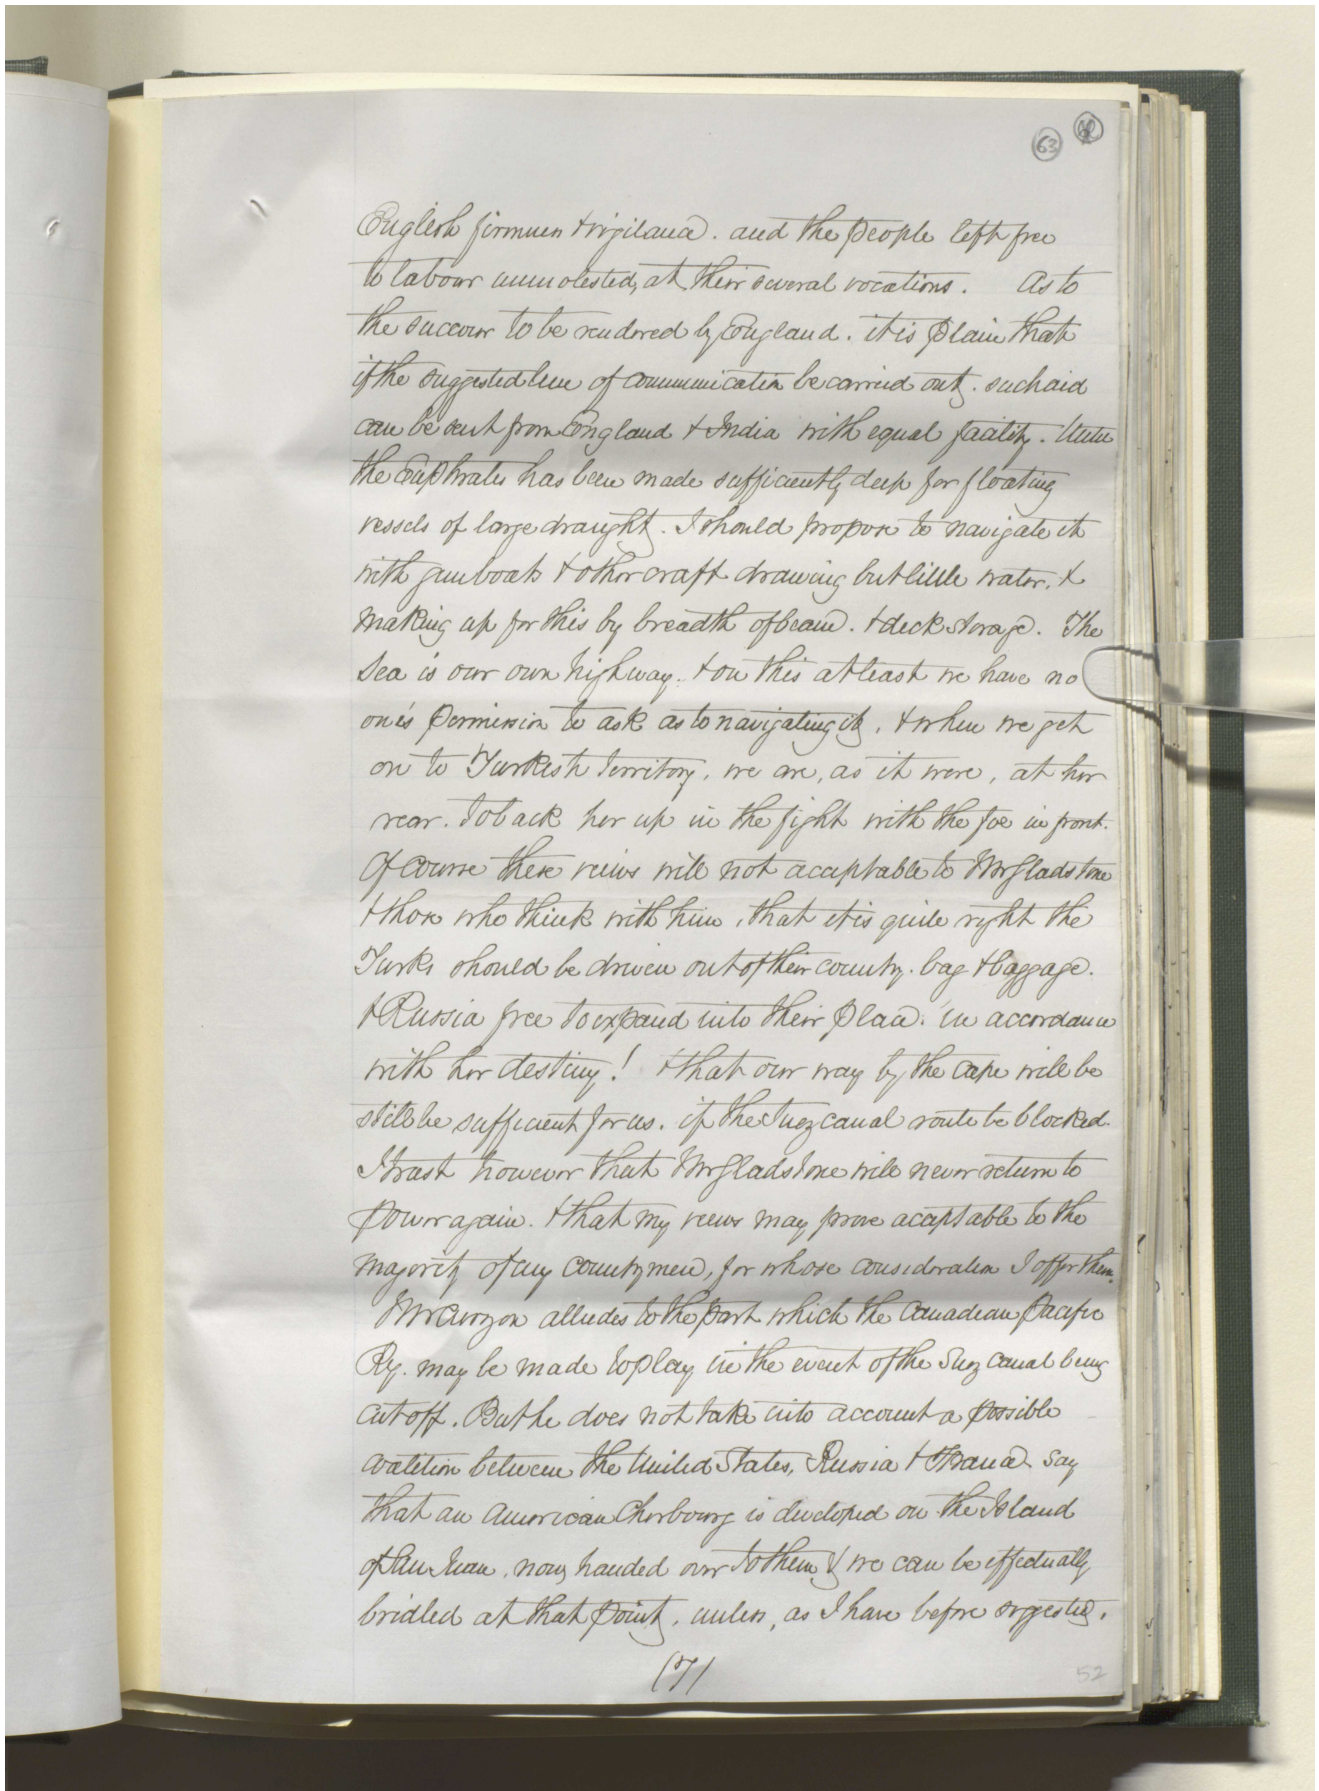 63
English firmness & vigilance. and the people left free
to labour unmolested, at their several vocations. As to
the succour to be rendered by England. it is plain that
if the suggested line of communication be carried out. such aid
can be sent from England & India with equal facility. Until
the Euphrates has been made sufficiently deep for floating
vessels of large draught. I should propose to navigate it
with gunboats & other craft drawing but little water. &
making up for this by breadth of beam. & deck storage. The
Sea is our own highway. & on this at least we have no
one's permission to ask as to navigating it, & when we get
on to Turkish territory, we are, as it were, at her
rear. to back her up in the fight with the foe in front.
Of course these views will not acceptable to Mr Gladstone
& those who think with him, that it is quite right the
Turks should be driven out of their country. bag & baggage.
& Russia free to expand into their place. in accordance
with her destiny! & that our way by the Cape will be
still be sufficient for us. if the Suez canal route be blocked.
I trust however that Mr Gladstone will never return to
power again. & that my views may prove acceptable to the
majority of my countrymen, for whose consideration I offer them.
Mr Curzon alludes to the part which the Canadian Pacific
Ry. may be made to play in the event of the Suez Canal being
cut off. But he does not take into account a possible
coalition between the United States, Russia & France. Say
that an American Cherbourg is developed on the Island
of San Juan, now handed over to them & we can be effectually
bridled at that point, unless, as I have before suggested.
(7)
52